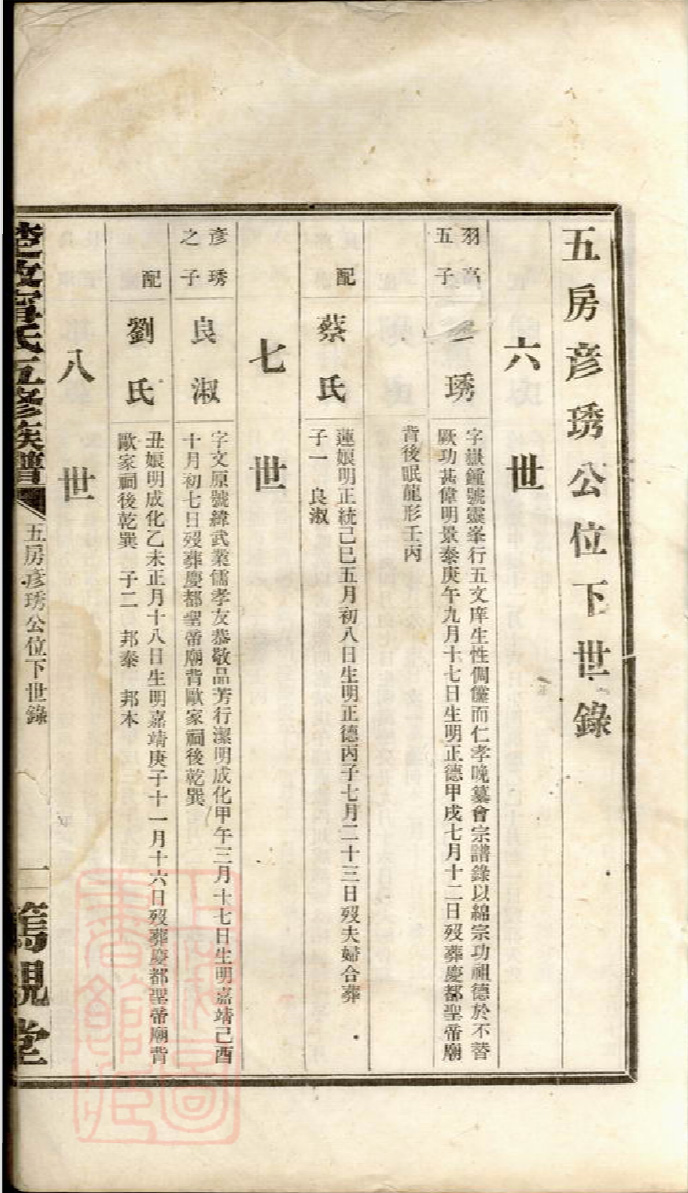 五房彥琇公位下世錄
六世
羽高
五子
琇
字嶽鍾號靈峯行五文庠生性倜儻而仁孝晚纂會宗譜錄以綿宗功祖德於不替
厥功甚偉明景泰庚午九月十七日生明正德甲戌七月十二日歿葬慶都聖帝廟
背後眠龍形壬丙
配
蔡氏
蓮娘明正統己巳五月初八日生明正德丙子七月二十三日歿夫婦合葬
子一 良淑
七世
彥琇
之子
良淑
字文原號緯武業儒孝友恭敬品芳行潔明成化甲午三月十七日生明嘉靖己酉
十月初七日歿葬慶都聖帝廟背歐家祠後乾巽
配
劉氏
丑娘明成化乙未正月十八日生明嘉靖庚子十一月十六日歿葬慶都聖帝廟背
歐家祠後乾巽 子二 邦泰 邦本
八世
氏五修族譜
五房彥琇公位下世錄
一
篤親堂